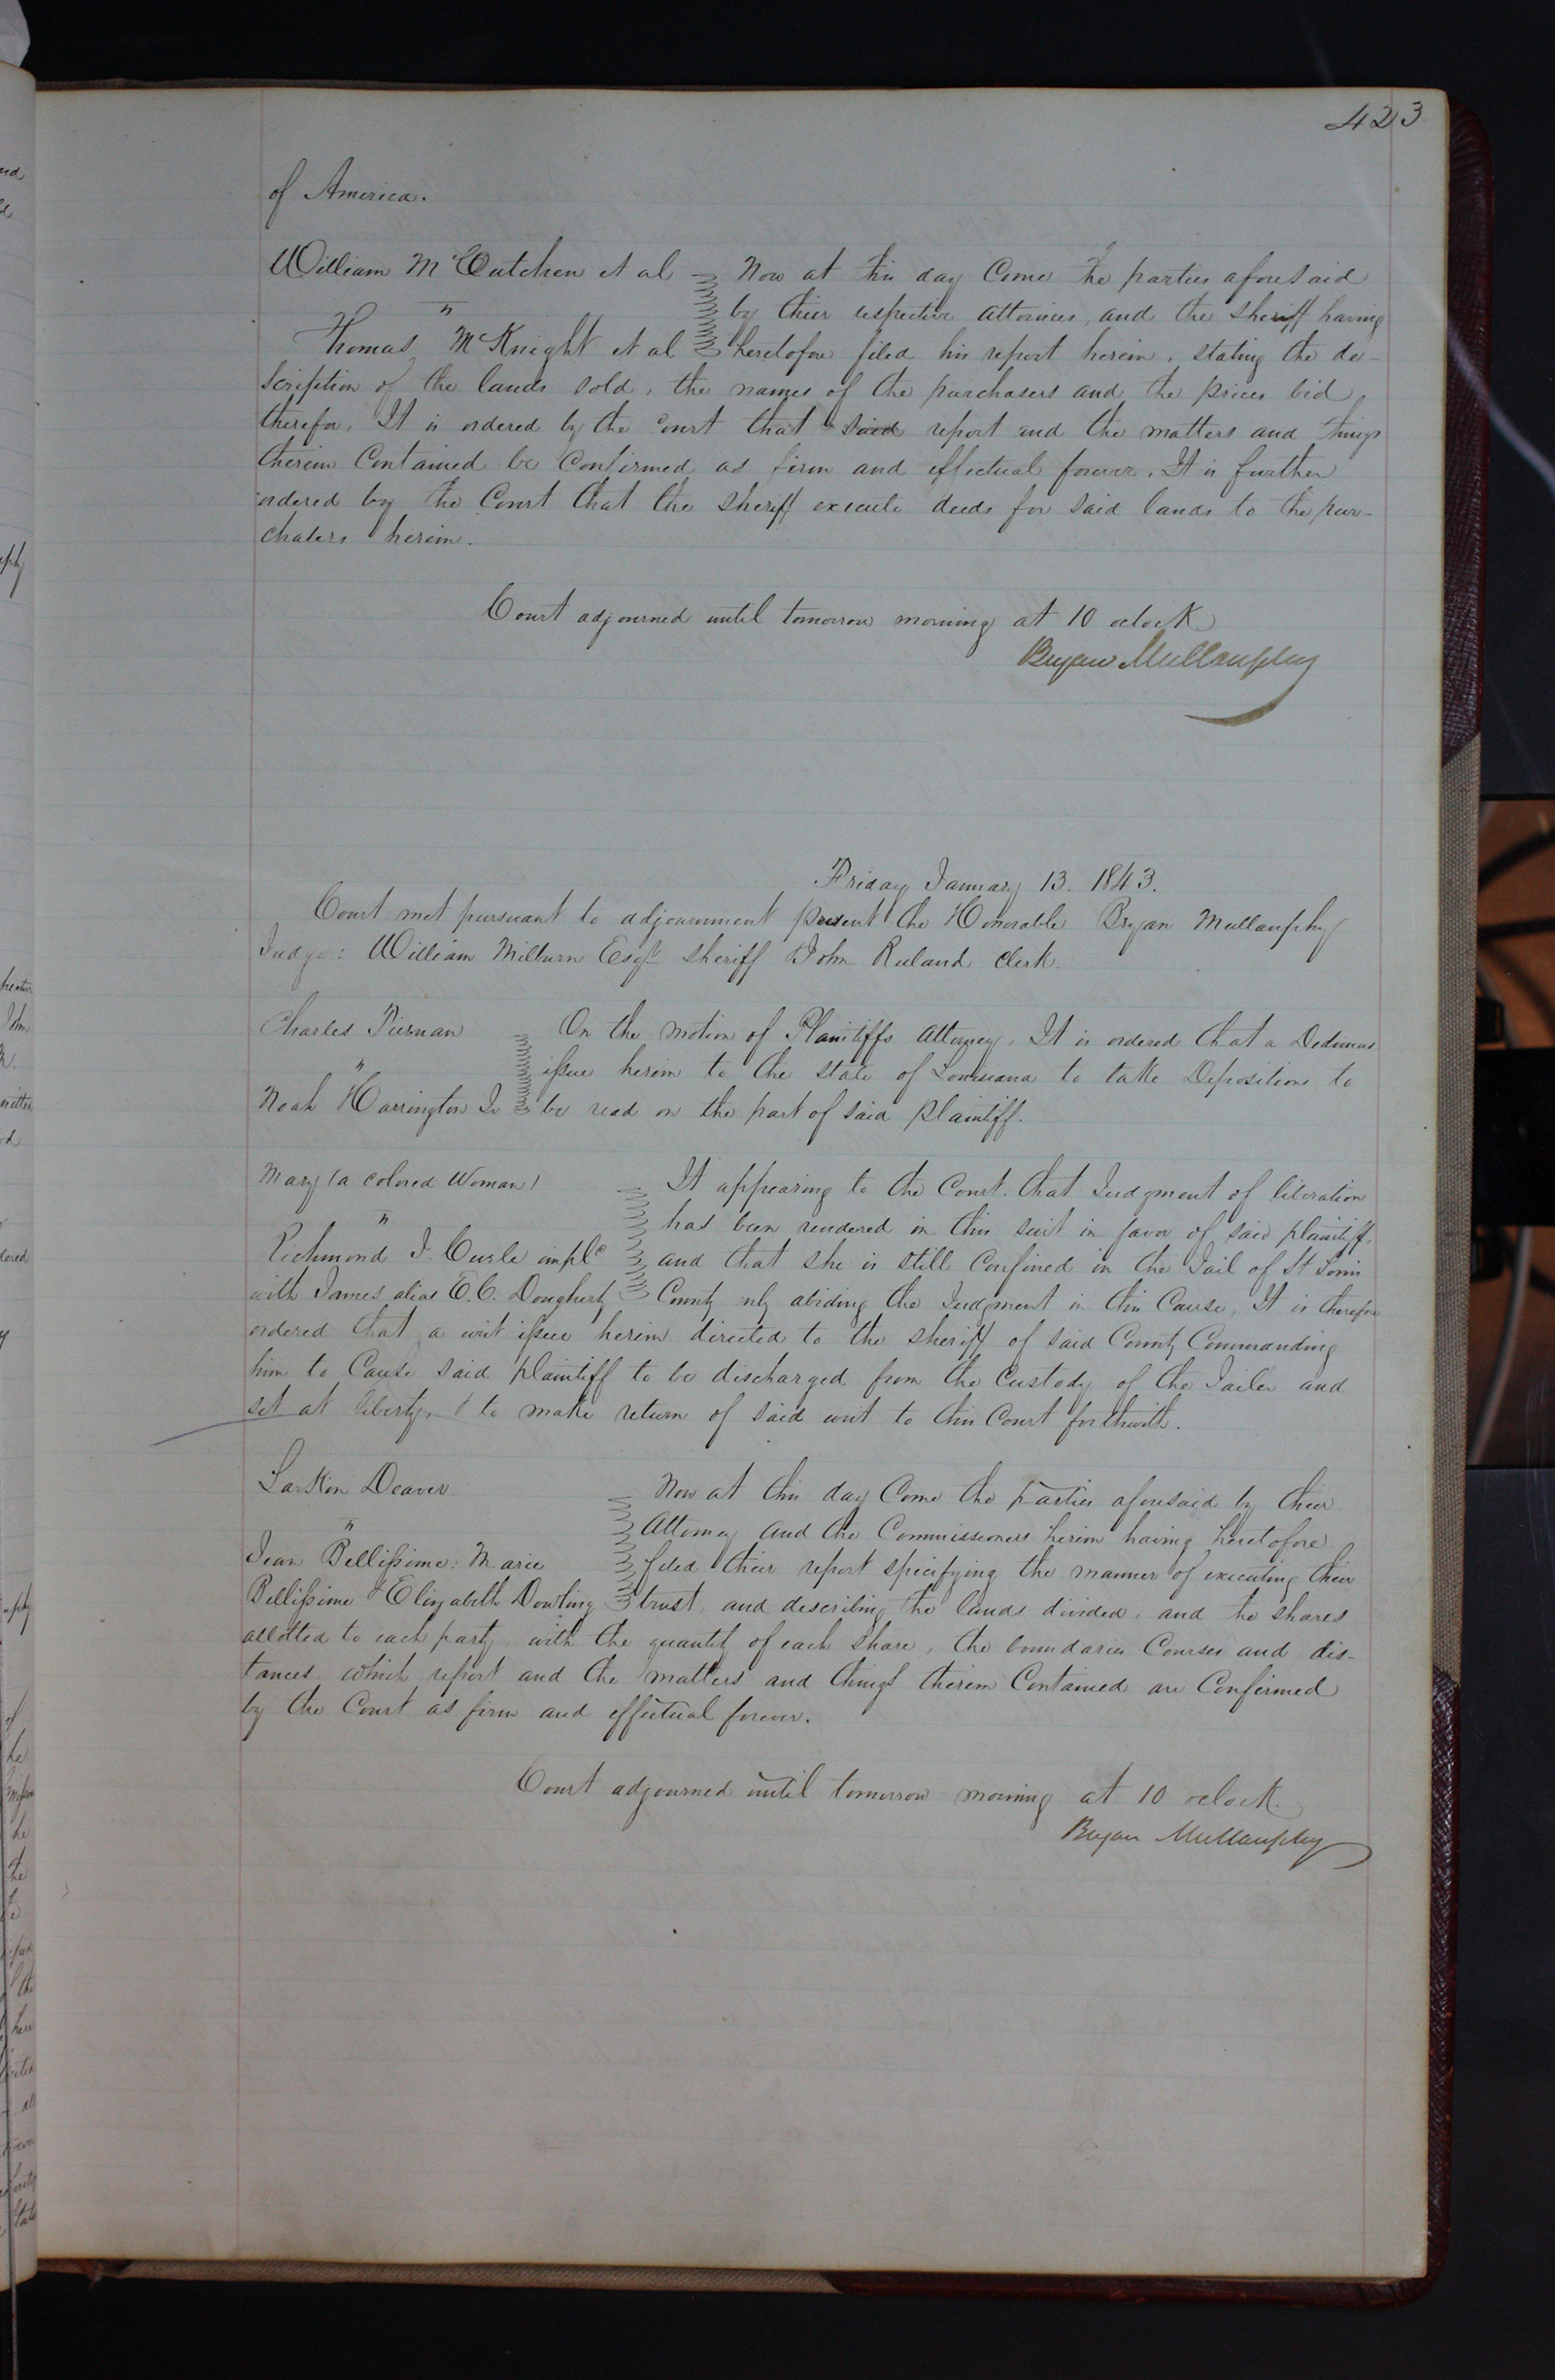 423
of America.
William McCutchen et al Now at this day Come the parties aforesaid
"
by their respective attornies, and the sheriff having
Thomas McKnight et al heretofore filed his report herein, stating the de-
scription of the lands sold, the names of the purchasers and the prices bid
therefor, It is ordered by the Court that said report and the matters and things
therein Contained be Confirmed as firm and effectual forever, It is further
ordered by the Court that the sheriff execute deeds for said lands to the pur-
chasers herein.
Court adjourned until tomorrow morning at 10 oclock
Bryan Mullanphy
Friday January 13. 1843.
Court met pursuant to adjournment present the Honorable Bryan Mullanphy
Judge: William Milburn Esqr sheriff & John Ruland Clerk.
Charles Tiernan On the motion of Plaintiffs Attorney, It is ordered that a Dedimus
"
issue herein to the state of Louisiana to take Depositions to
Noah Harrington Jr be read on the part of said plaintiff.
Mary (a colored Woman) It appearing to the Court that Judgment of liberation
"
has been rendered in this suit in favor of said plaintiff,
Richmond J. Curle impld and that she is still Confined in the Jail of St Louis
with James alias E.C. Dougherty County only abiding the Judgment in this Cause, It is therefore
ordered that a writ issue herein directed to the sheriff of said County Commanding
him to Cause said plaintiff to be discharged from the Custody of the Jailer and
set at liberty, & to make return of said writ to this Court forthwith.
Larkin Deaver. Now at this day Come the parties aforesaid by their
"
Attorney and the Commissioners herein having heretofore
Jean Bellissime: Marie filed their report specifying the manner of executing their
Bellissime & Elizabeth Dowling trust, and describing the lands divided, and the shares
allotted to each party, with the quantity of each share, the boundaries Courses and dis-
tances, which report and the matters and things therein Contained are Confirmed
by the Court as firm and effectual forever.
Court adjourned until tomorrow morning at 10 oclock.
Bryan Mullanphy